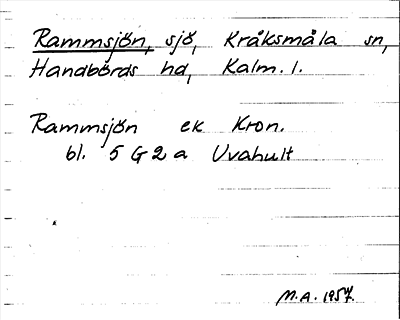 Rammsjön, sjö, Kråksmåla sn,
Handbörds hd, Kalm. l.
Rammsjön ek Kron.
bl. 5 G 2 a Uvahult
M.A. 1957.